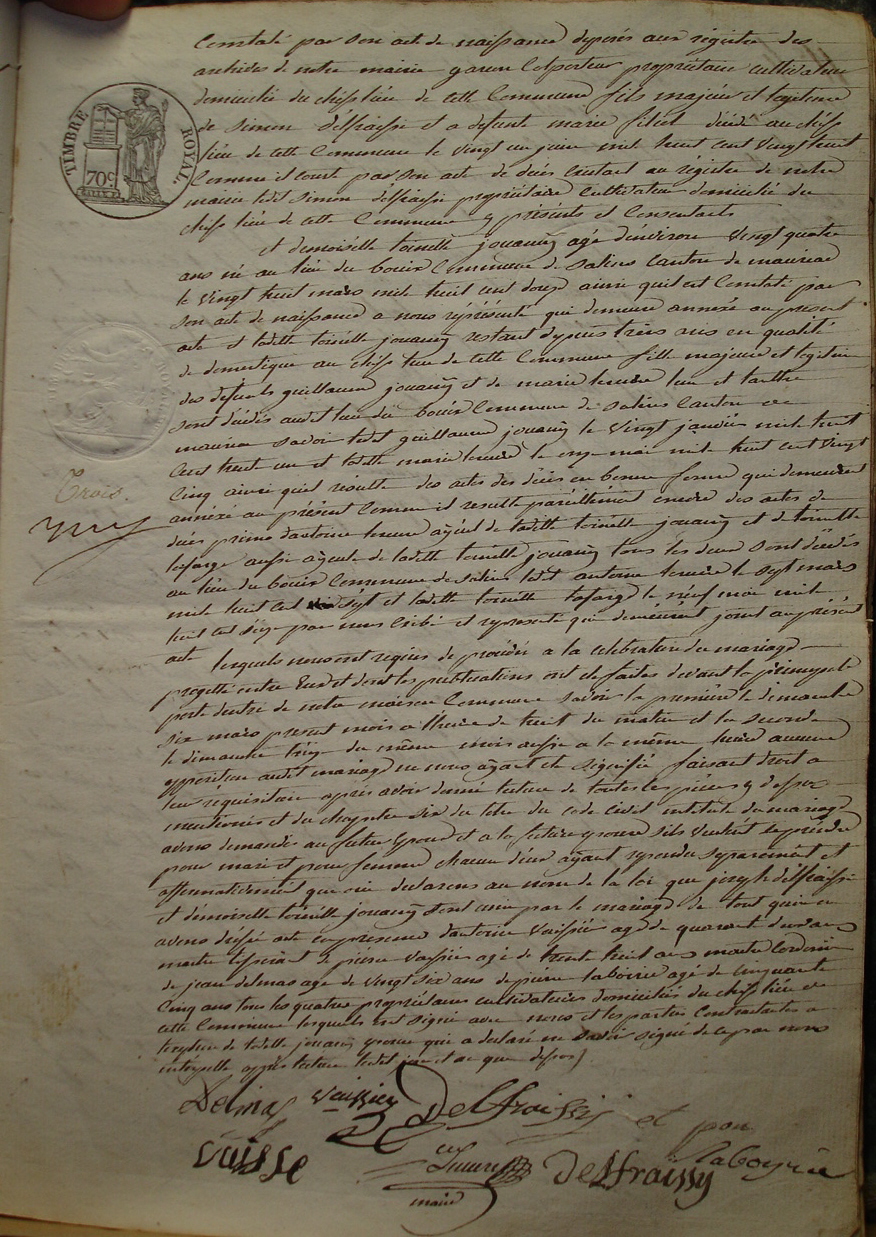 TIMBRE ROYAL.
70c
Constaté par son acte de naissance deposés aux régistre des
archives de notre mairie garcon propriétaire cultivateur
domicilié du chef lieu de cette Commune fils majeur et legitime
de Simon delfraissi et a defunte marie filiol au chef
lieu de cette Commune le vingt un juin mil huit cent vingt huit
Comme il conste par son acte de décès au régistre de notre
mairie ledit Simon delfraissi propriétaire Cultivateur domicilié du
chef lieu de cette Commune y présents et Consentants
et demoiselle toinette jouanny agé denviron vingt quatre
ans né au lieu du bouix Commune de Salins Canton de mauriac
le vingt huit mars mil huit cent douze ainsi quil est Constaté par
son acte de naissance a nous réprésenté qui demeure annexé au présent
acte et ladette toinette jouanny restant depuis trois ans en qualité
de domestique au chef lieu de cette Commune fille majeure et legitime
des defunts guillaume jouanny et de marie lun et lautre
sont décédés audit lieu du bouix Commune de Salins Canton de
mauriac savoir ledit guillaume jouanny le vingt janvier mil huit
Cent trente un et ladette marie le onze mai mil huit cent vingt
Cinq ainsi quil résulte des actes des décès en bonne forme qui demeurent
annexé au présent Comme il resulte pareillement encore des actes de
décès primo dantoine ayeul de ladette toinette jouanny et de toinette
lafarge aussi ayeule de ladette toinette jouanny tous les deux sont décédés
au lieu du bouix Commune de Salins ledit antoine le sept mars
mil huit cent sept et ladette toinette lafarge le neuf mai mil
huit cent seize par nous et representé qui demeurent joint au présent
acte lesquels nous ont requis de procéder a la celebration du mariage
projetté entre eux et dont les publications ont été faites devant la principale
porte dentré de notre maison Commune savoir la première le dimanche
six mars présent mois a lheure de huit du matin et la seconde
le dimanche treize du même mois aussi a la même heure aucune
opposition audit mariage ne nous ayant été signifié faisant droit a
leur réquisition après avoir donné lecture de toutes les pièces y dessus
mentionés et du chapitre six du titre du code civil intitulé du mariage
avons demandés au futur epoux et a la future epouse sils veulent se prendre
pour mari et pour femme chacun deux ayant repondu séparement et
affirmativement que oui declarons au nom de la loi que joseph delfraissi
et demoiselle toinette jouanny sont unis par le mariage de tout quoi
avons dressé acte en présence dantoine Vaissier agé de quarant deux ans
de pierre Vaissier agé de trente huit ans maitre
de jean delmas age de vingt six ans de pierre laborie agé de cinquante
Cinq ans tous les quatre propriétaires cultivateurs domiciliés du chef lieu de
cette Commune lesquels ont signé avec nous et les parties Contractantes a
de ladette jouanny epouse qui a declaré ne savoir signé de ce par nous
après lecture ledit jour et an que dessus
trois.
Delmas Vaissier Delfraissi et pou
Vaisse Delfraissy Laboyrie
maire